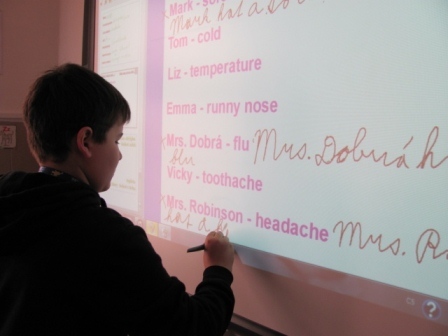 Mark - so
Mark hat a so
Tom - cold
Liz - temperature
Emma - runny nose
Mrs. Dobrá - flu Mrs. Dobrá h
flu
Vicky - toothache
Mrs. Robinson - headache Mrs. R
hat a